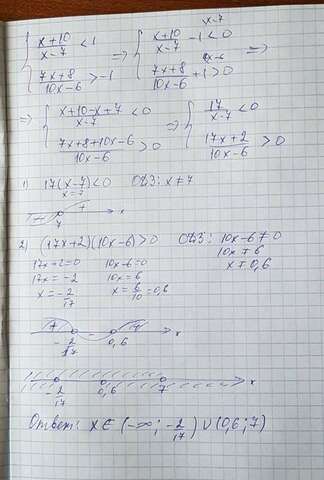 x-7
{ x+10/x-7 < 1 ⇒ { x+10/x-7 - 1 < 0 ⇒
7x+8/10x-6 > -1 7x+8/10x-6 + 1 > 0
⇒ { x+10-x+7/x-7 < 0 ⇒ { 17/x-7 < 0
7x+8+10x-6/10x-6 > 0 17x+2/10x-6 > 0
1) 17(x-7)<0 ОДЗ: x≠7
x=7
- + x
7
2) (17x+2)(10x-6)>0 ОДЗ: 10x-6≠0
17x+2=0 10x-6=0 10x≠6
17x=-2 10x=6 x≠0,6
x=-2/17 x=6/10=0,6
+ - + x
-2/17 0,6
-2/17 0,6 7 x
Ответ: x∈(-∞; -2/17)∪(0,6;7)